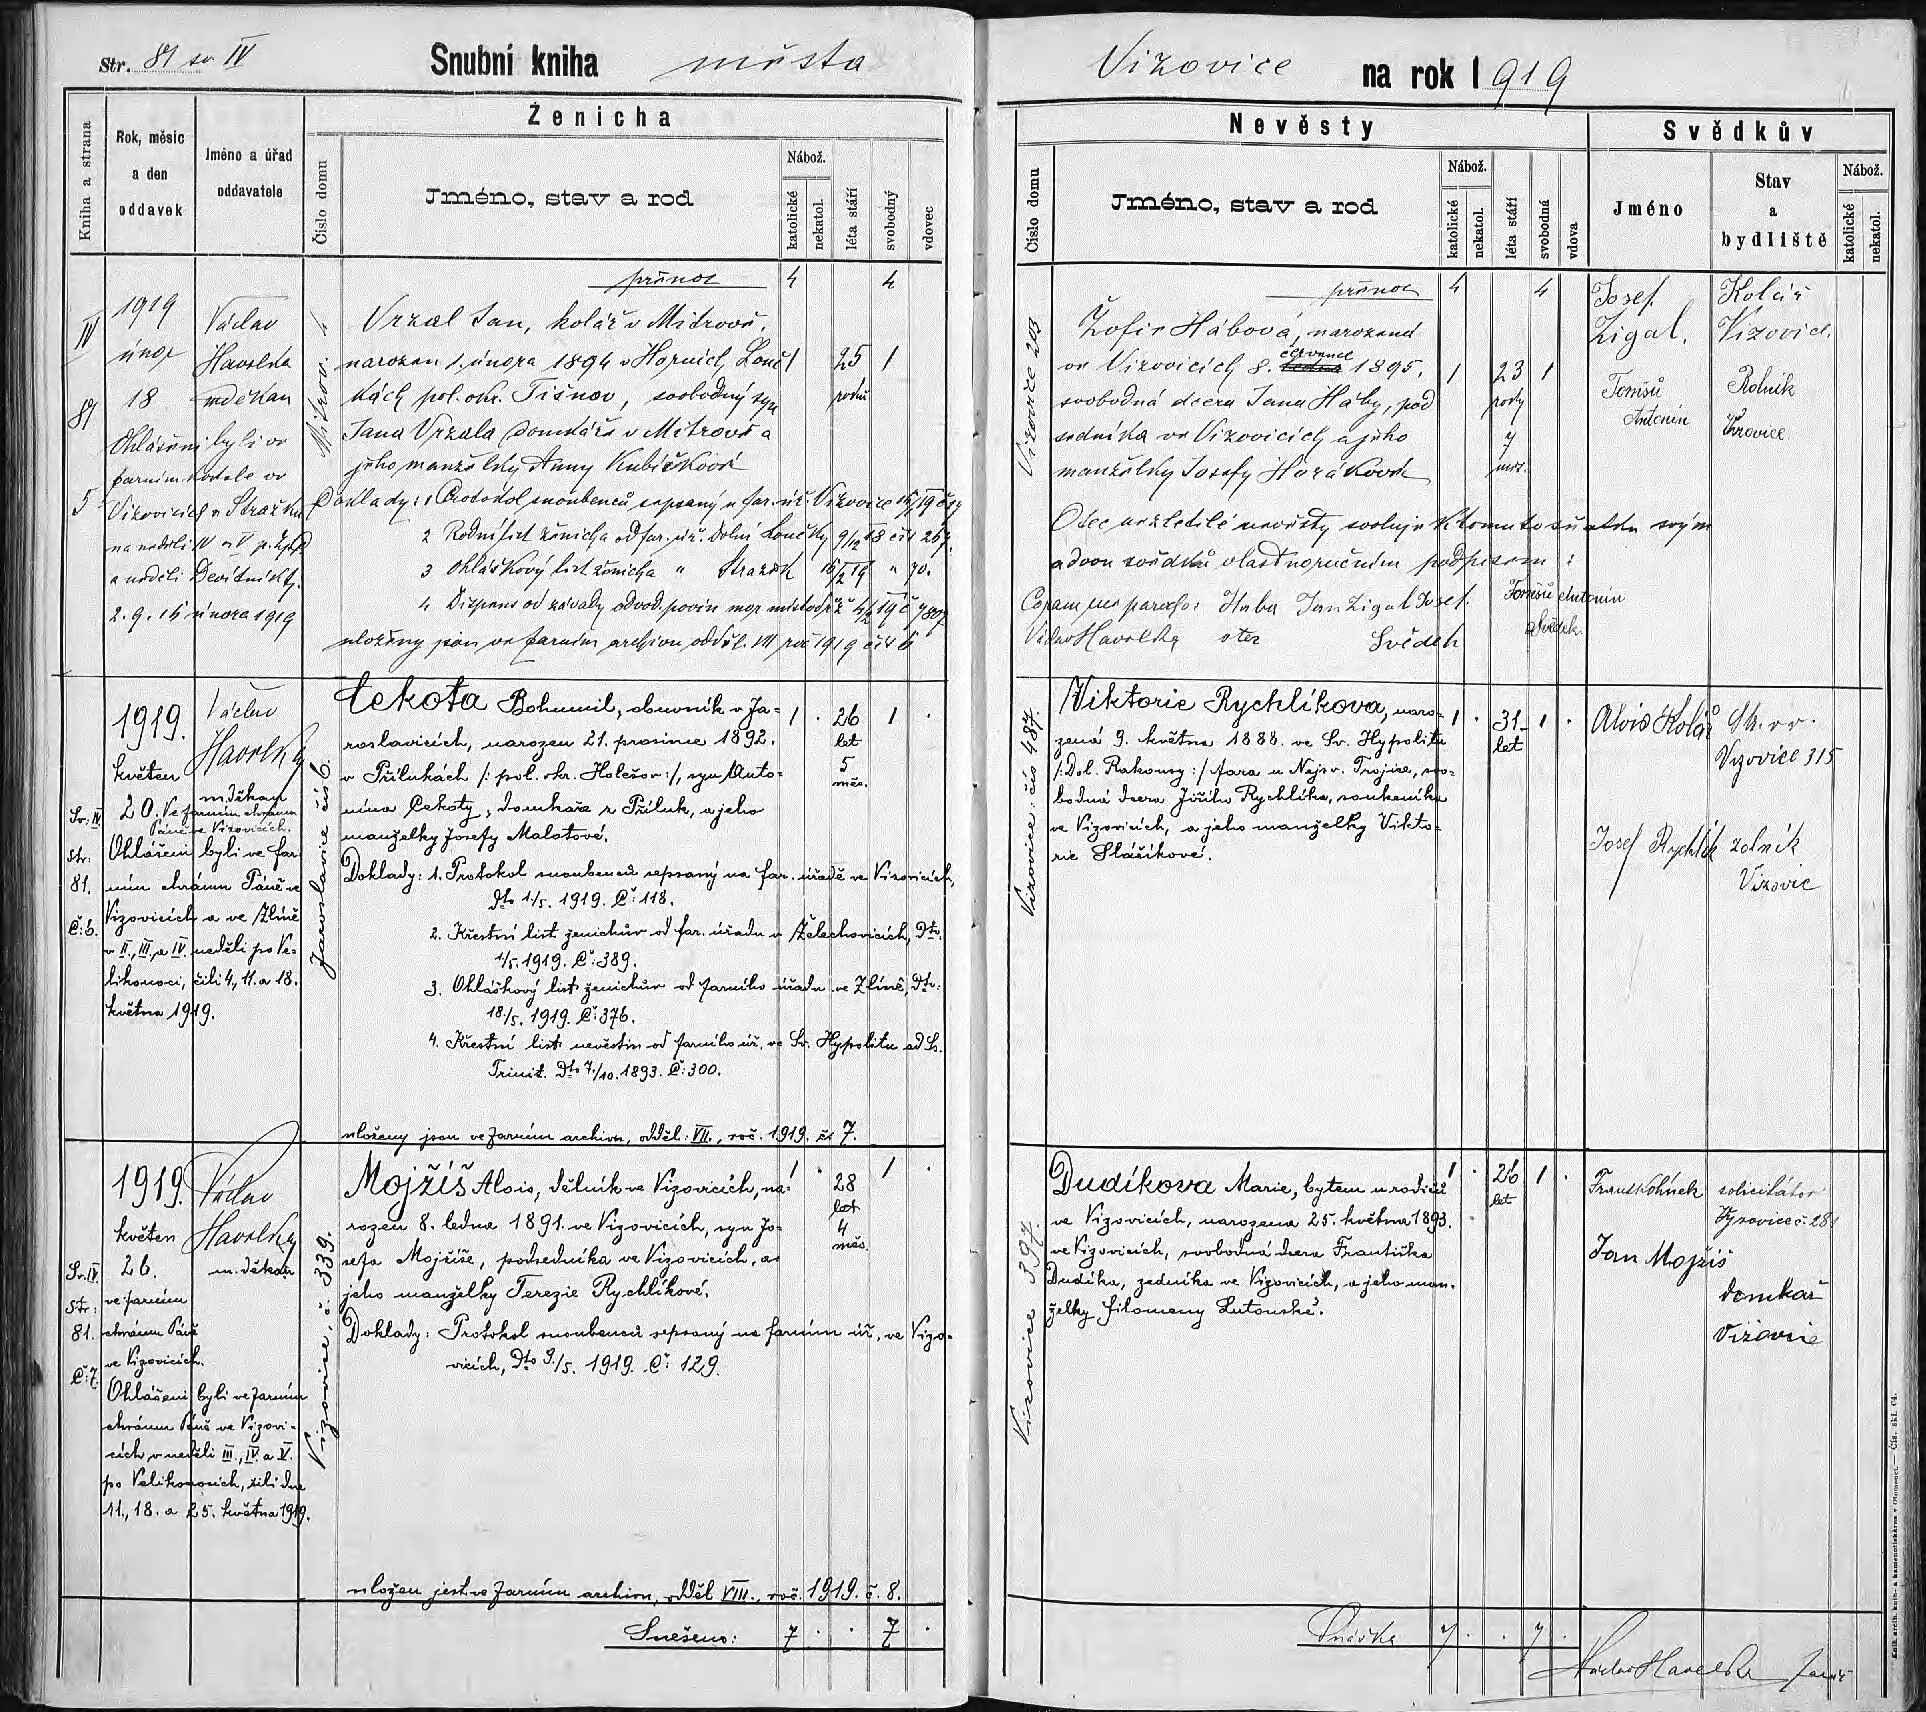 Str. 81 sv IV
Snubní kniha města
Vizovice na rok 1919
Kniha a strana
Rok, měsíc
a den
oddavek
Jméno a úřad
oddavatele
Ženicha
Číslo domu
Jméno, stav a rod
Nábož.
katolické
nekatol.
léta stáří
svobodný
vdovec
Nevěsty
Číslo domu
Jméno, stav a rod
Nábož.
katolické
nekatol.
léta stáří
svobodná
vdova
Svědkův
Jméno
Stav
a
bydliště
Nábož.
katolické
nekatol.
přenos 4 4
IV
81
5
1919
únor
18
Václav
Havelka
m děkan
Ohlášeni byli ve
farním kostele ve
Vizovicích a Stražku
na neděli IV a V p. Zj. P
a neděli Devítník
2. 9. 16 února 1919
Mitrov. 1
Vrzal Jan, kolář v Mitrově,
narozen 1. února 1894 v Horních Louč
kách pol. okr. Tišnov, svobodný syn
Jana Vrzala domkáře v Mitrově a
jeho manželky Anny Kubíčkové
1 25 1
roků
Doklady: 1 Protokol snoubenců sepsaný u far. úř. Vizovice
2 Rodný list ženicha od far. úř. Dolní Loučky 9/12 18 čís 267.
3 Ohláškový list ženicha " Stražek 16/2 19 " 70.
4 Dispens od závady odvod. povin
uloženy jsou ve farním archivu odděl. VII roč 1919 čís 6
přenos 4 4
Vizovice 203
Žofie Hábová, narozená
ve Vizovicích 8. ledna července 1895,
svobodná dcera Jana Háby, pod
sedníka ve Vizovicích a jeho
manželky Josefy Horákové
1 23 1
roky
7
měs.
Josef
Zigal.
Kolář
Vizovice.
Tomšů
Antonín
Rolník
Vizovice
Otec nezletilé nevěsty svoluje k tomuto sňatku svým
a dvou svědků vlastnoručním podpisem :
Coram me parocho: Hába Jan Zigal Josef. Tomšů Antonín
Václav Havelka otec Svědek Svědek.
Sv: IV.
Str:
81.
Č: 6.
1919.
květen
20. Ve farním chrámu
Páně ve Vizovicích.
Václav
Havelka
m. děkan
Ohlášeni byli ve far
ním chrámu Páně ve
Vizovicích a ve Zlíně
v II., III., a IV. neděli po Ve=
likonoci, čili 4., 11. a 18.
května 1919.
Jaroslavice čís 6.
Čekota Bohumil, obuvník v Ja=
roslavicích, narozen 21. prosince 1892.
v Přílukách /: pol. okr. Holešov :/, syn Anto=
nína Čekoty, domkaře z Příluk, a jeho
manželky Josefy Malotové.
1 . 26 1 .
let
5
měs.
Doklady: 1. Protokol snoubenců sepsaný na far. úřadě ve Vizovicích,
Dto 1/5. 1919. Č: 118.
2. Křestní list ženichův od far. úřadu v Želechovicích, Dto.
1/5. 1919. Č: 389.
3. Ohláškový list ženichův od farního úřadu ve Zlíně, Dto:
18/5. 1919. Č: 376.
4. Křestní list nevěstin od farního úř. ve Sv. Hypolitu ad S.
Trinit. Dto 7./10. 1893. Č: 300.
uloženy jsou ve farním archivu, odděl. VII., roč. 1919. čís 7.
Vizovice: čís 487.
Viktorie Rychlíkova, naro=
zená 9. května 1888. ve Sv. Hypolitu
/: Dol. Rakousy :/ fara u Nejsv. Trojice, svo=
bodná dcera Jiřího Rychlíka, soukeníka
ve Vizovicích, a jeho manželky Vikto=
rie Slášíkové.
1 . 31 1 .
let
Alois Kolář
Vyzovice 315
Josef Rychlík
rolník
Vizovic
Sv. IV.
Str:
81.
Č: 7.
1919.
květen
26.
ve farním
chrámu Páně
ve Vizovicích.
Václav
Havelka
m. děkan
Ohlášeni byli ve farním
chrámu Páně ve Vizovi=
cích v neděli III., IV. a V.
po Velikonocích, čili dne
11., 18. a 25. května 1919.
Vizovice, č. 339.
Mojžíš Alois, dělník ve Vizovicích, na=
rozen 8. ledna 1891. ve Vizovicích, syn Jo=
sefa Mojžíše, podsedníka ve Vizovicích, a
jeho manželky Terezie Rychlíkové.
1 . 28 1 .
let
4
měs.
Doklady: Protokol snoubenců sepsaný na farním úř, ve Vizo=
vicích, Dto 9./5. 1919. Č: 129.
uložen jest ve farním archivu, odděl VIII., roč. 1919. č. 8.
Snešeno: 7 . . 7 .
Vizovice 397.
Dudíkova Marie, bytem u rodičů
ve Vizovicích, narozena 25. května 1893.
ve Vizovicích, svobodná dcera Františka
Dudíka, zedníka ve Vizovicích, a jeho man=
želky Filomeny Lutonské.
1 . 26 1 .
let
solicitátor
Vyzovice č. 281
Jan Mojžíš
domkař
Vizovice
Snáška 7 . . 7 .
Václav Havelka farář
Knih. arcib. knih- a kamenotiskárna v Olomouci. — Čís. skl. 64.